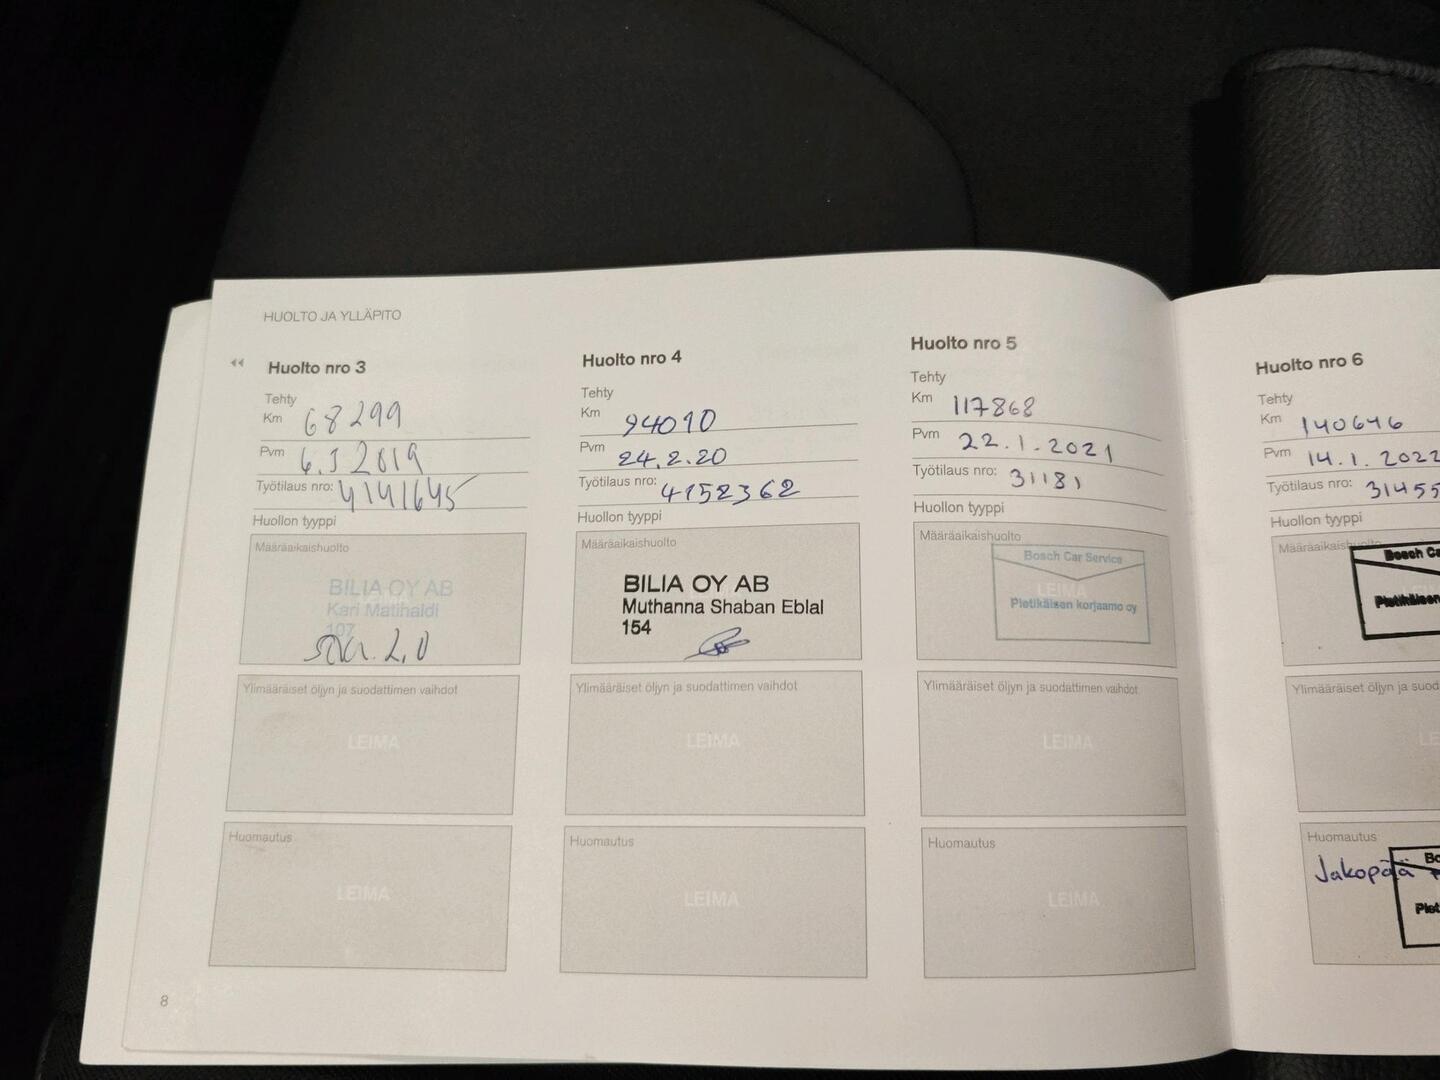 HUOLTO JA YLLÄPITO
Huolto nro 3
Tehty
Km 68299
Pvm 6.3 2019
Työtilaus nro: 4141645
Huollon tyyppi
Määräaikaishuolto
BILIA OY AB
Kari Matihaldi
107
2,0
Ylimääräiset öljyn ja suodattimen vaihdot
LEIMA
Huomautus
LEIMA
Huolto nro 4
Tehty
Km 94010
Pvm 24.2.20
Työtilaus nro: 4152362
Huollon tyyppi
Määräaikaishuolto
BILIA OY AB
Muthanna Shaban Eblal
154
Ylimääräiset öljyn ja suodattimen vaihdot
LEIMA
Huomautus
LEIMA
Huolto nro 5
Tehty
Km 117868
Pvm 22.1.2021
Työtilaus nro: 31181
Huollon tyyppi
Määräaikaishuolto
Bosch Car Service
LEIMA
Pietikäisen korjaamo oy
Ylimääräiset öljyn ja suodattimen vaihdot
LEIMA
Huomautus
LEIMA
Huolto nro 6
Tehty
Km 140646
Pvm 14.1.2022
Työtilaus nro: 31455
Huollon tyyppi
Määräaikaishuolto
Bosch Ca
Pietikäisen
Ylimääräiset öljyn ja suod
LE
Huomautus
Bo
Jakopää
Piet
8